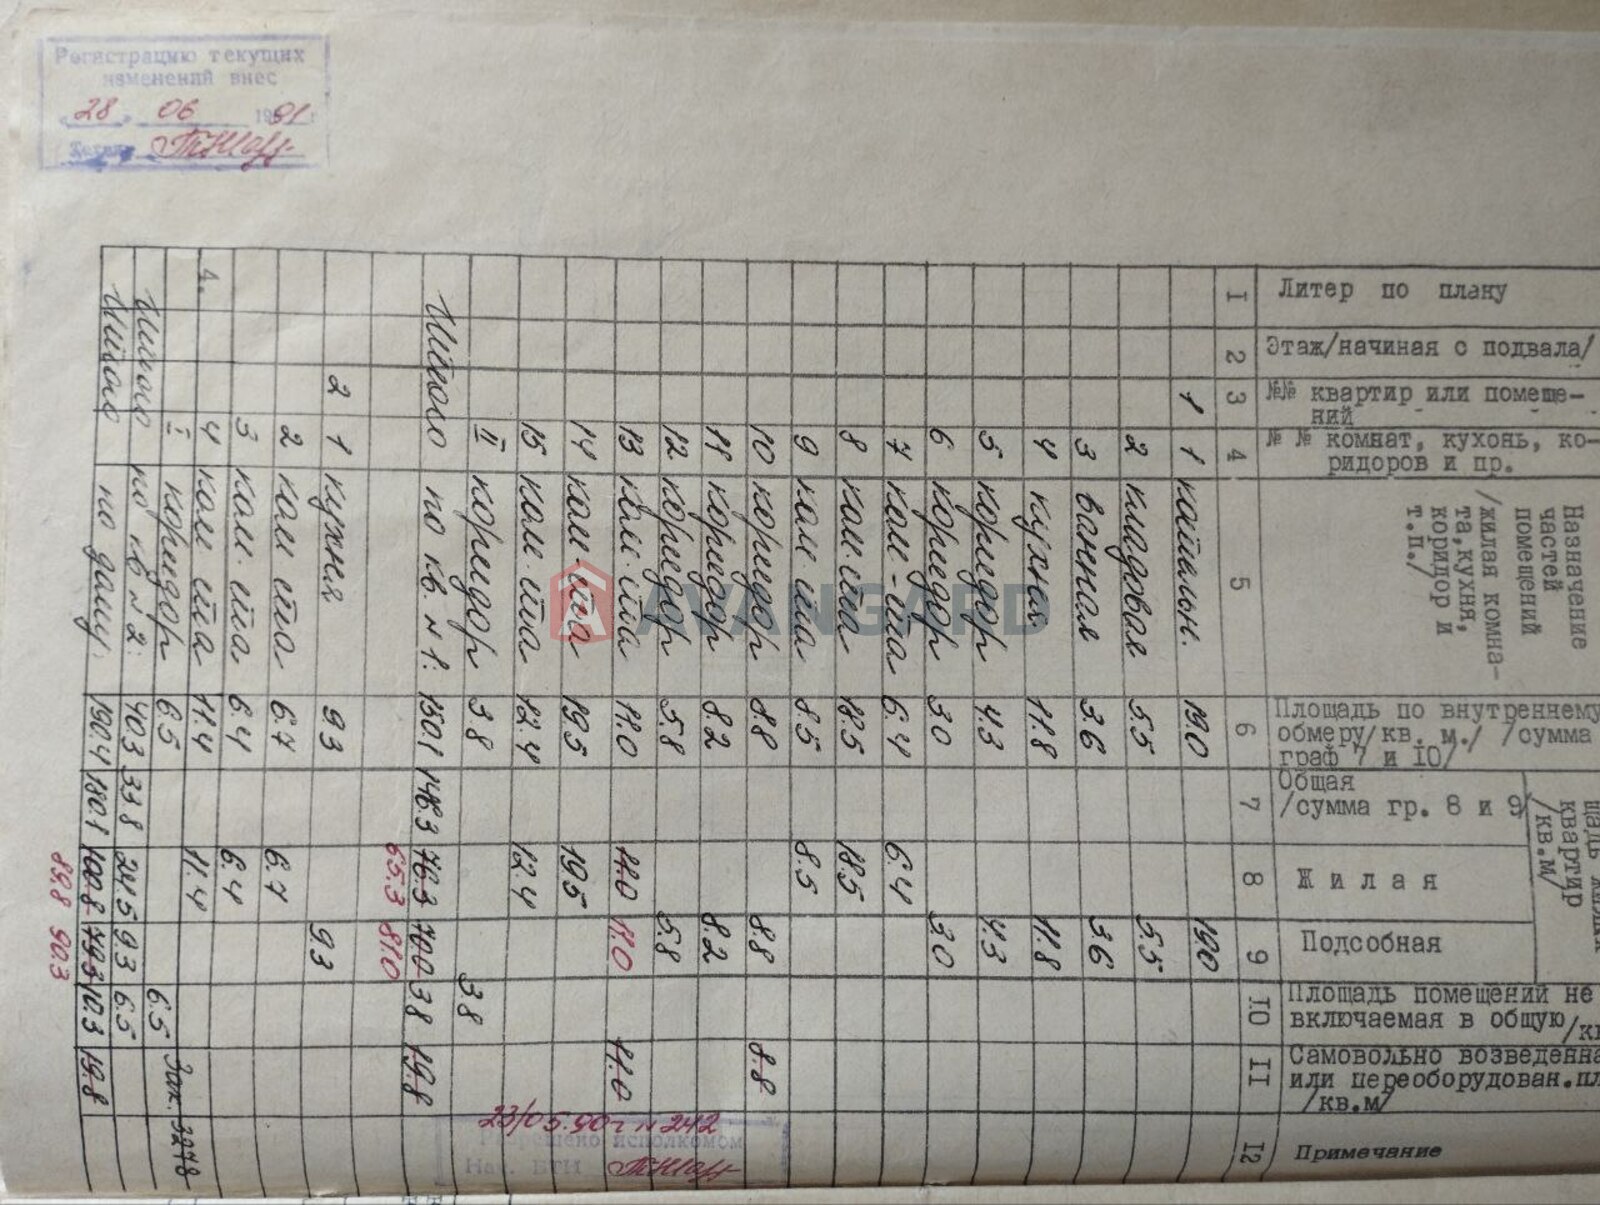 Регистрацию текущих
изменений внес
28 06 1991 г.
Литер по плану
Этаж/начиная с подвала/
№№ квартир или помеще-
ний
№ № комнат, кухонь, ко-
ридоров и пр.
Назначение
частей
помещений
/жилая комна-
та,кухня,
коридор и
т.п./
Площадь по внутреннему
обмеру/кв. м./ /сумма
граф 7 и 10/
Общая
/сумма гр. 8 и 9/
квартир
/кв.м/
Жилая
Подсобная
Площадь помещений не
включаемая в общую/к
Самовольно возведенна
или переоборудован.пл
/кв.м/
Примечание
1 2 3 4 5 6 7 8 9 10 11 12
1 1 котельн. 19.0 19.0
2 кладовая 5.5 5.5
3 ванная 3.6 3.6
4 кухня 11.8 11.8
5 коридор 4.3 4.3
6 коридор 3.0 3.0
7 ком-та 6.4 6.4
8 ком.та 18.5 18.5
9 ком.та 8.5 8.5
10 коридор 8.8 8.8 8.8
11 коридор 8.2 8.2
12 коридор 5.8 5.8
13 ком.та 11.0 11.0 11.0 11.0
14 ком.та 19.5 19.5
15 ком.та 12.4 12.4
II коридор 3.8 3.8
Итого по кв. N 1: 150.1 146.3 76.3 70.0 3.8 19.8
65.3 81.0
2 1 кухня 9.3 9.3
2 ком та 6.7 6.7
3 ком.та 6.4 6.4
4 ком та 11.4 11.4
I коридор 6.5 6.5
Итого по кв N 2: 40.3 33.8 24.5 9.3 6.5
Итого по дому: 190.4 180.1 100.8 79.3 10.3 19.8
89.8 90.3
Зак. 3278
23/05.90г N 242
Разрешено исполкомом
Нач. БТИ
AVANGARD